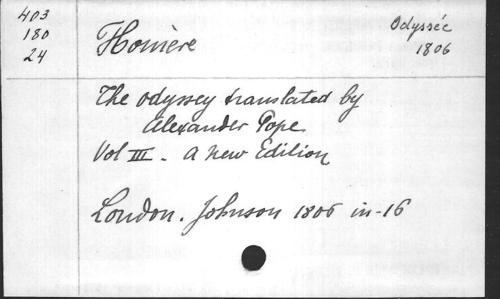 403
180
24
Homère
Odyssée
1806
The odyssey translated by
Alexander Pope
Vol III - A new Edition
London. Johnson 1806 in-16